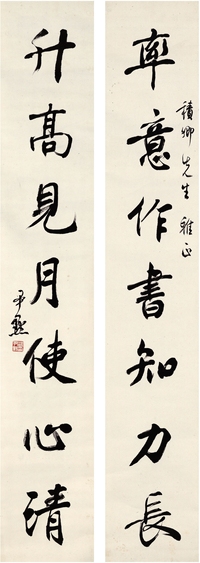 率意作書知力長
讀卿先生雅正
升高見月使心清
尹默